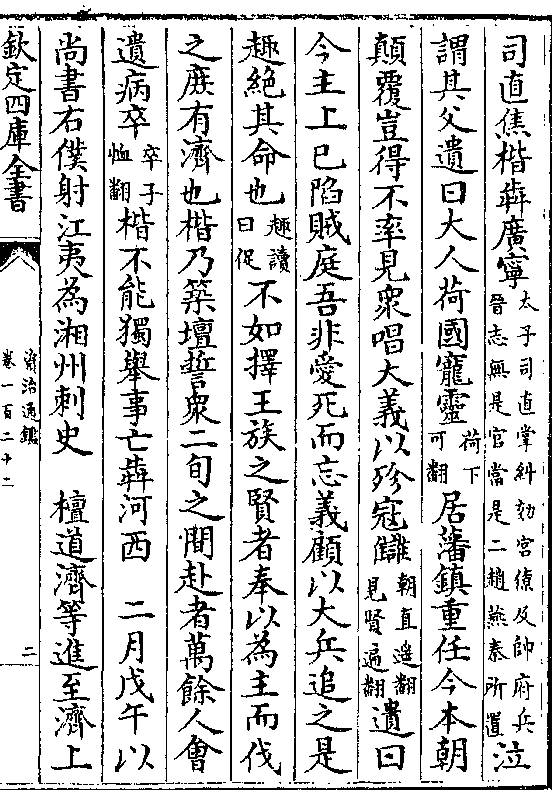 司直焦楷犇廣寧太子司直掌糾劾宮僚及帥府兵晉志無是官當是二趙燕秦所置泣
謂其父遺曰大人荷國寵靈荷下可翻居藩鎮重任今本朝
顛覆豈得不率見衆唱大義以殄寇讎朝直遥翻見賢遍翻遺曰
今主上已陷賊庭吾非愛死而忘義顧以大兵追之是
趣絕其命也趣讀曰促不如擇王族之賢者奉以為主而伐
之庶有濟也楷乃築壇誓衆二旬之間赴者萬餘人會
遺病卒卒子恤翻楷不能獨舉事亡犇河西 二月戊午以
尚書右僕射江夷為湘州刺史 檀道濟等進至濟上
欽定四庫全書
資治通鑑
卷一百二十二
二